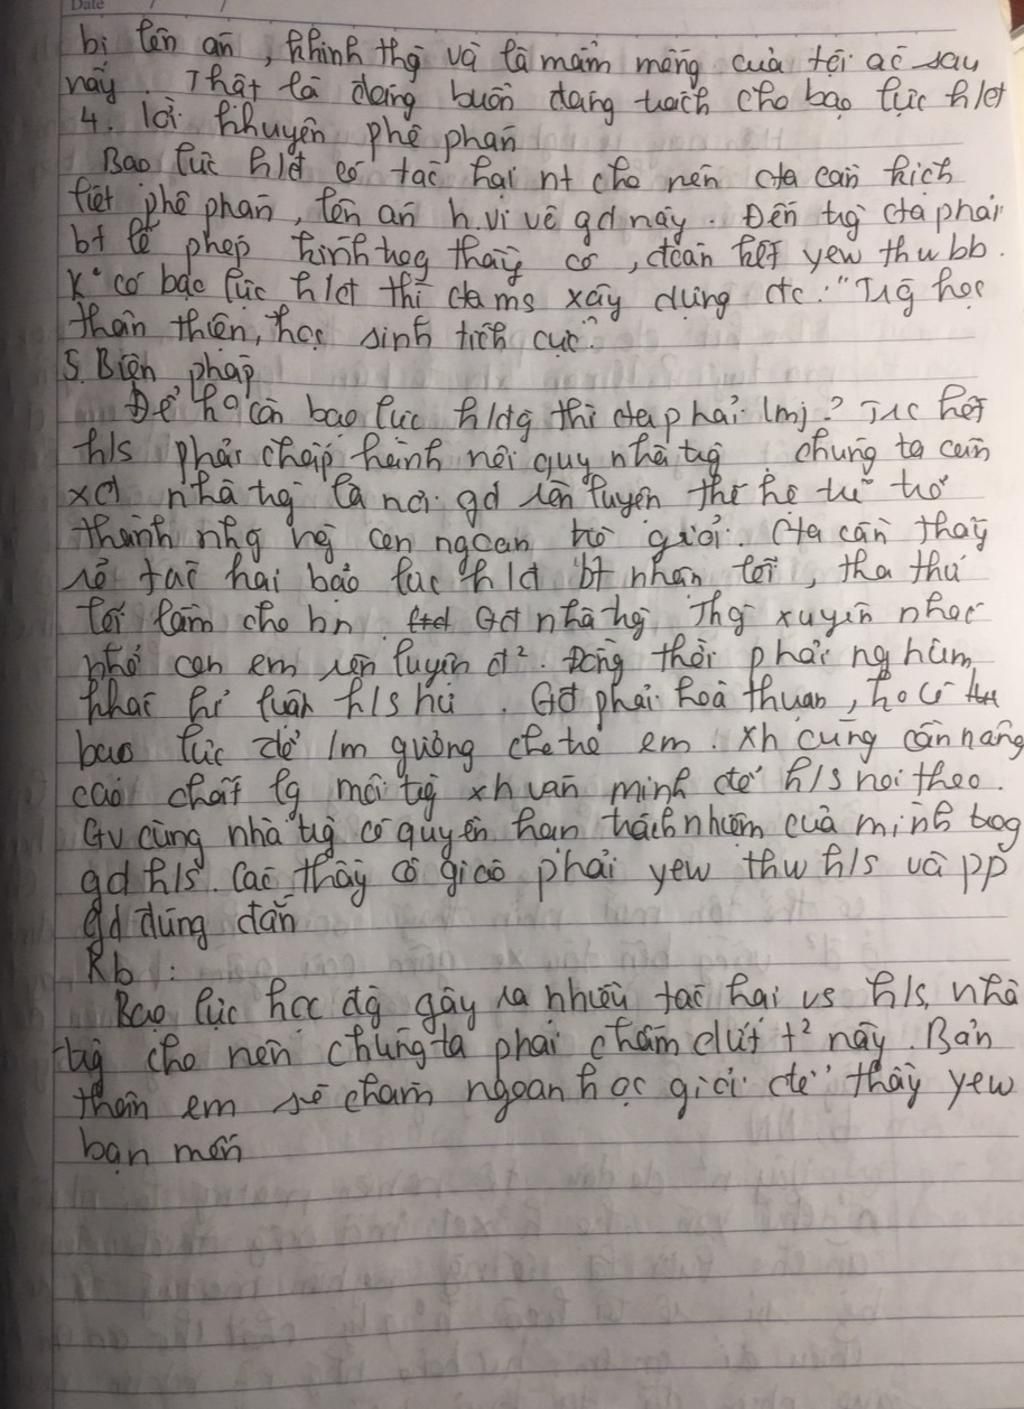 Date / /
bị lên án, khinh thg và là mầm mống của tội ác sau
này. Thật là đáng buồn đáng trách cho bạo lực h/đ
4. lời khuyên phê phán
Bạo lực h/đ có tác hại nt cho nên cta cần kịch
liệt phê phán, lên án h.vi vô gd này. Đến trg cta phải
bt lễ phép kính trọg thầy cô, đoàn kết yew thw bb.
K° có bạo lực h/đ thì cta ms xây dựng đc: "Trg học
thân thiện, học sinh tích cực".
5. Biện pháp
Để k° còn bạo lực h/đg thì cta phải lmj? Trc hết
h/s phải chấp hành nội quy nhà trg. chúng ta cần
xđ nhà trg là nơi gd rèn luyện thế hệ trẻ trở
thành nhg ng con ngoan trò giỏi. Cta cần thấy
rõ tác hại bạo lực h/đ bt nhận lỗi, tha thứ
lỗi lầm cho bn. Gđ nhà trg Thg xuyên nhắc
nhở con em rèn luyện đ². Đồng thời phải nghiêm
khắc kỉ luật h/s hư. Gđ phải hoà thuận, ko có
bạo lực để lm gương cho trẻ em. Xh cũng cần nâng
cao chất lg môi trg xh văn minh để h/s noi theo.
Gv cùng nhà trg có quyền hạn trách nhiệm của mình trog
gd h/s. Các thầy cô giáo phải yew thw h/s và pp
gd đúng đắn
Kb :
Bạo lực học đg gây ra nhiều tác hại vs h/s, nhà
trg cho nên chúng ta phải chấm dứt t² này. Bản
thân em sẽ chăm ngoan học giỏi để thầy yew
bạn mến